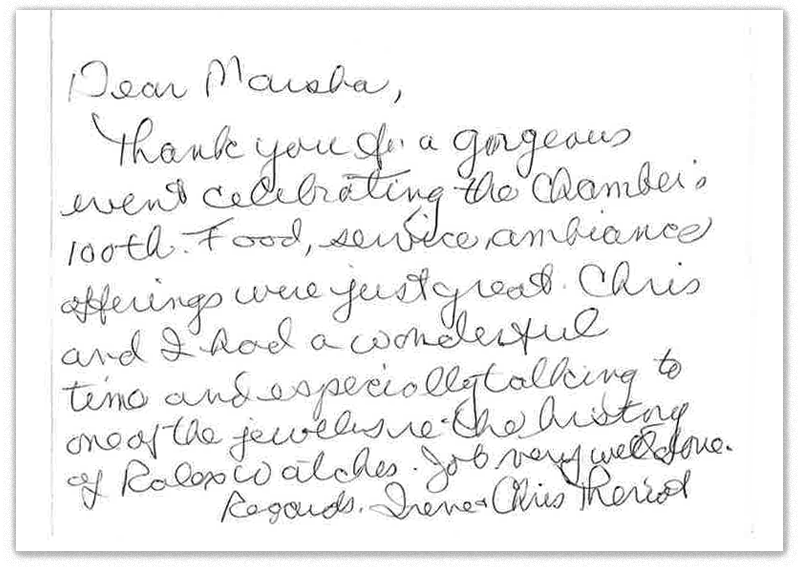 Dear Marsha,
Thank you for a gorgeous
event celebrating the Chamber's
100th. Food, service, ambiance
offerings were just great. Chris
and I had a wonderful
time and especially talking to
one of the jewelers re: the history
of Rolex watches. Job very well done.
Regards, Irene & Chris Theriot